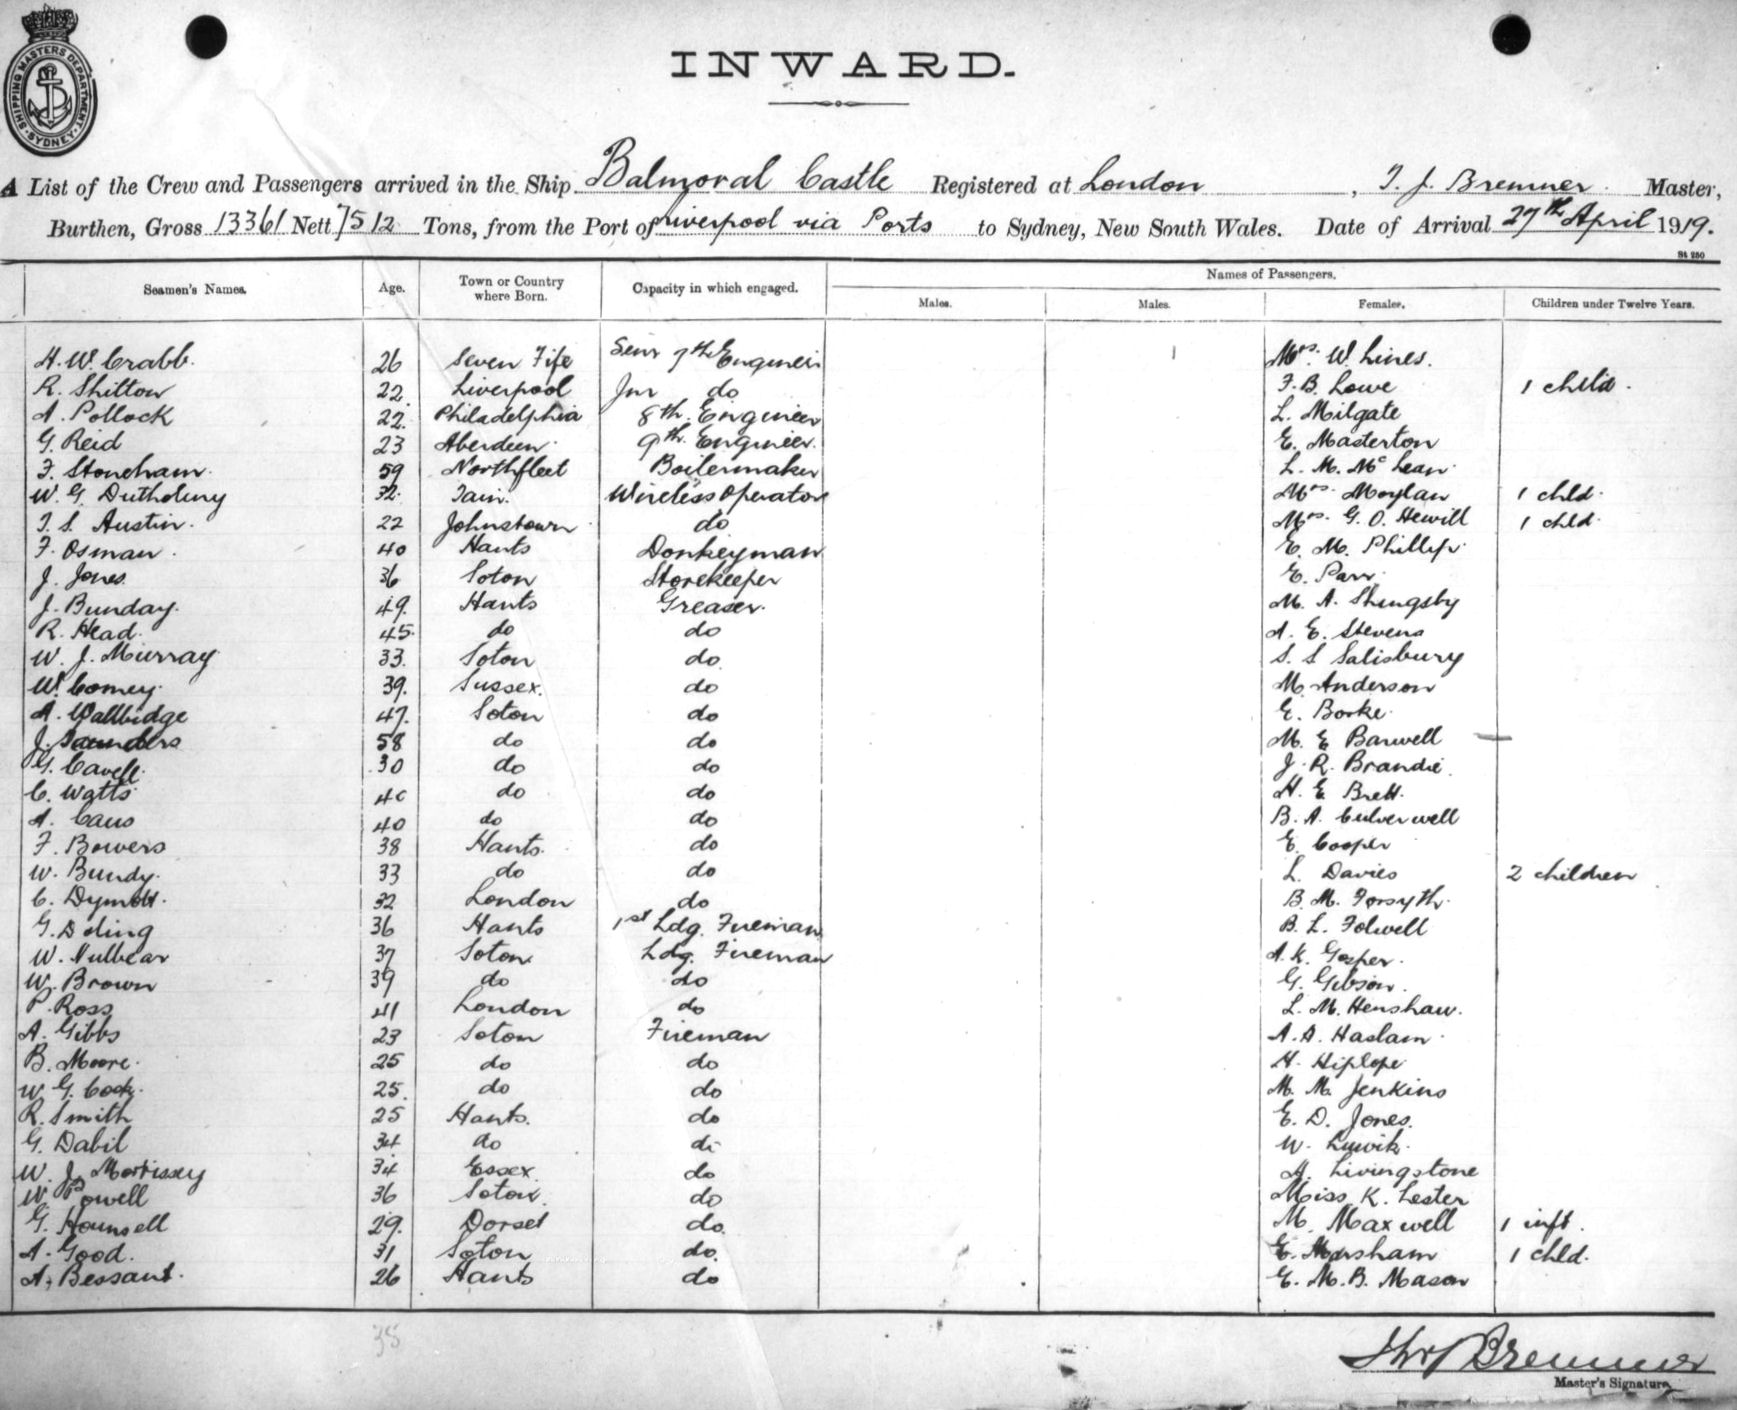 SHIPPING MASTERS DEPARTMENT. SYDNEY.
INWARD.
A List of the Crew and Passengers arrived in the Ship Balmoral Castle Registered at London, T. J. Bremner Master,
Burthen, Gross 13361 Nett 7512 Tons, from the Port of Liverpool via Ports to Sydney, New South Wales. Date of Arrival 27th April 1919.
St 250
Names of Passengers.
Seamen's Names. Age. Town or Country where Born. Capacity in which engaged. Males. Males. Females. Children under Twelve Years.
H. W. Crabb. 26 Seven Fife Senr 7th Engineer Mrs. W. Lines.
R. Shitton 22. Liverpool Jnr do F. B. Lowe 1 child.
A. Pollock 22. Philadelphia 8th Engineer L. Milgate
G. Reid 23 Aberdeen 9th Engineer. E. Masterton
F. Stoneham. 59 Northfleet Boilermaker L. M. McLean
W. G. 32. Tain. Wireless Operator Mrs. Moylan 1 chld.
T. S. Austin. 22 Johnstown do Mrs. G. O. Hewill 1 chld.
F. Osman. 40 Hants Donkeyman E. M. Phillips
J. Jones 36 Soton Storekeeper E. Parr
J. Bunday. 49. Hants Greaser. M. A. Shingsby
R. Head. 45. do do A. E. Stevens
W. J. Murray 33. Soton do S. S Salisbury
W. Comey. 39. Sussex. do M. Anderson
A. Wallbidge 47. Soton do E. Borke
J. Saunders 58 do do M. E Barwell
G. Cavell. 30 do do J. R. Brandie
C. Watts 40 do do H. E Brett.
A. Caws 40 do do B. A. Culverwell
F. Bowers 38 Hants. do E. Cooper
W. Bundy. 33 do do L Davies 2 children
C. Dymott. 32 London do B. M. Forsyth
G. Doling 36 Hants 1st Ldg. Fireman B. L. Folwell
W. Nulbear 37 Soton Ldg. Fireman A. K. Gosper.
W. Brown 39 do do G. Gibson.
P. Ross 41 London do L. M. Henshaw.
A. Gibbs 23 Soton Fireman A. A. Haslam
B. Moore. 25 do do H. Hiplope
W. G. Cook. 25. do do M. M. Jenkins
R. Smith 25 Hants. do E. D. Jones.
G. Dabil 34 do do W.
W. J. Morrissey 34 Essex do A. Livingstone
W. Powell 36 Soton. do Miss K. Lester
G. Hounsell 29. Dorset do. M. Maxwell 1 inft.
A. Good. 31 Soton do. E. Horsham 1 chld.
A. Bessant. 26 Hants do E. M. B. Mason
38
Bremner
Master's Signature